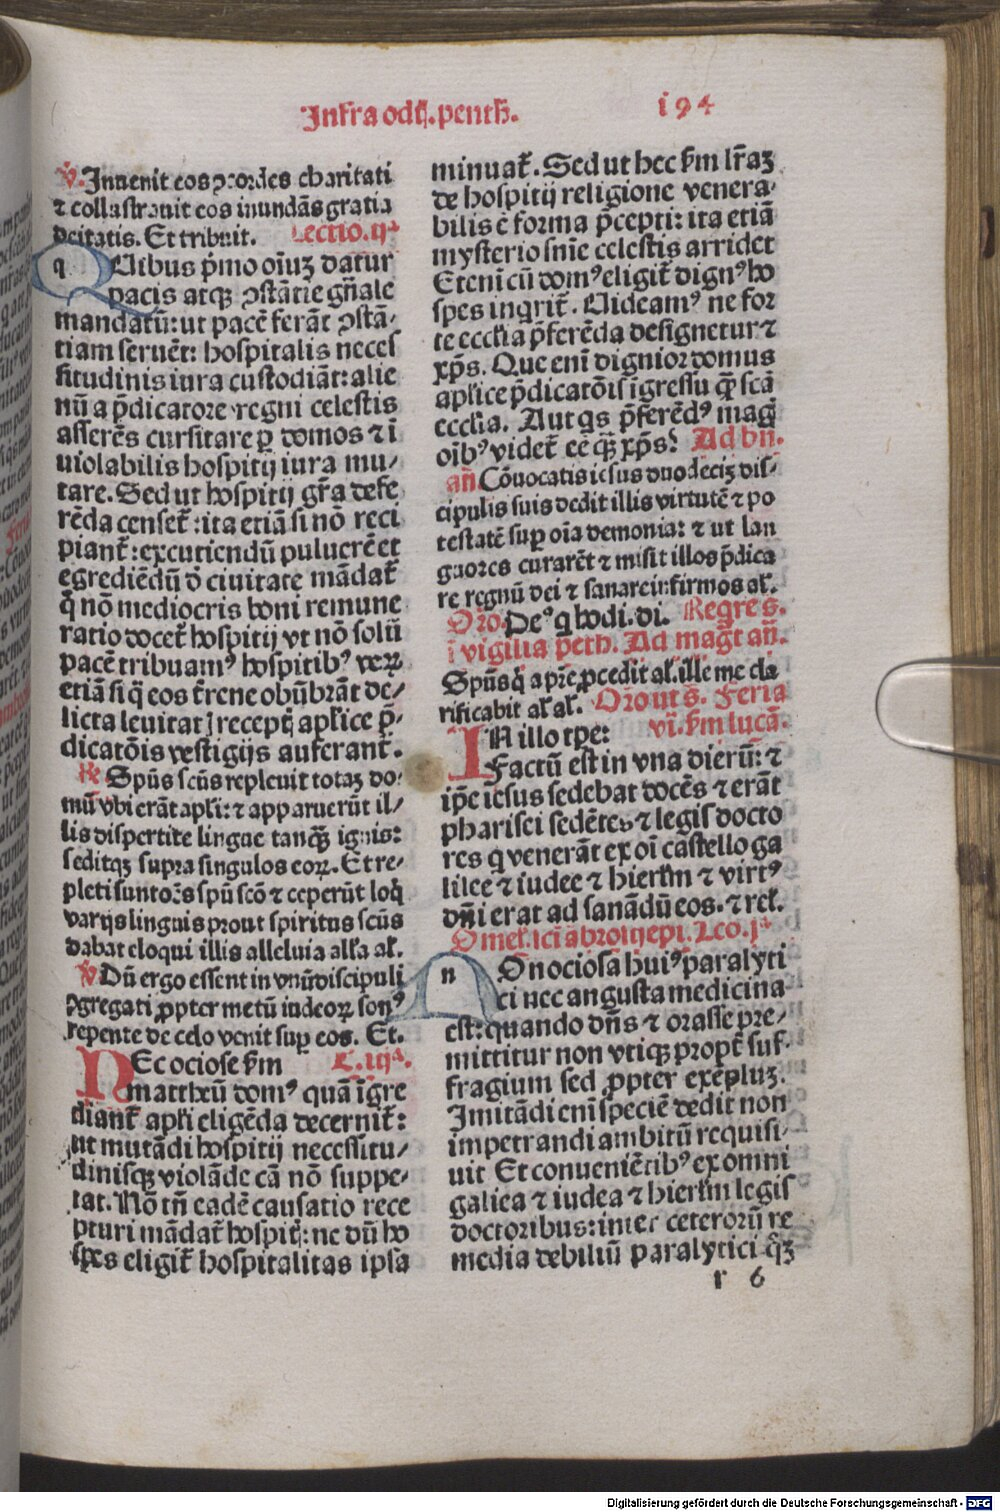 Infra octꝭ. penth̄. 194
℣. Inuenit eos ꝯcordes charitati
⁊ collustrauit eos inundās gratia
deitatis. Et tribuit. Lectio. ijª
qUibus p̄mo oīuꝫ datur
pacis atqꝫ ꝯstātie gn̄ale
mandatū: ut pacē ferāt ꝯstā-
tiam seruēt: hospitalis neces
situdinis iura custodiāt: alie
nū a p̄dicatore regni celestis
asserēs cursitare ꝑ domos ⁊ ī
uiolabilis hospitij iura mu-
tare. Sed ut hospitij gr̄a defe
rēda censet̄: ita etiā si nō reci
piant̄: excutiendū puluerē et
egrediēdū d̓ ciuitate mādat̄
q̄ nō mediocris boni remune
ratio docet̄ hospitij vt nō solū
pacē tribuamꝰ hospitibꝰ veꝝ
etiā si q̄ eos t̄rene obūbrāt de-
licta leuitat̄ ꝛ receptꝭ apl̄ice p̄-
dicatōis vestigijs auferant̄.
℟ Spūs scūs repleuit totaꝫ do-
mū vbi erāt apl̄i: ⁊ apparuerūt il-
lis dispertite lingue tanqꝫ ignis:
seditqꝫ supra singulos eoꝝ. Et re-
pleti sunt oēs spū scō ⁊ ceperūt loq̄
varijs linguis prout spiritus scūs
dabat eloqui illis alleluia all̄a al̄.
℣ Dū ergo essent in vnū discipuli
ꝯgregati ꝓpter metū iudeoꝝ sonꝰ
repente de celo venit suꝑ eos. Et.
NEc ociose km̄ L. iijª.
mattheū domꝰ quā īgre
diant̄ apl̄i eligēda decernit̄:
ut mutādi hospitij necessitu-
dinisqꝫ violāde cā nō suppe-
tat. Nō tn̄ eadē causatio rece
pturi mādat̄ hospitꝭ: ne dū ho
spes eligit̄ hospitalitas ipsa
minuat̄. Sed ut hec km̄ lr̄aꝫ
de hospitij religione venera-
bilis ē forma p̄cepti: ita etiā
mysterio snīe celestis arridet
Etenī cū domꝰ eligit̄ dignꝰ ho
spes inqrit̄. Uideamꝰ ne for
te ecclīa p̄ferēda designetur ⁊
xp̄s. Que enī dignior domus
apl̄ice p̄dicatōis īgressu qꝫ scā
ecclīa. Aut qs p̄ferēdꝰ magꝭ
oībꝰ videt̄ eē qꝫ xp̄s? Ad bn̄.
an̄. Cōuocatis iesus duodeciꝫ dis-
cipulis suis dedit illis virtutē ⁊ po
testatē suꝑ oīa demonia: ⁊ ut lan
guores curarēt ⁊ misit illos p̄dica
re regnū dei ⁊ sanare infirmos al̄.
Oro. Deꝰ q hodi. di. Regre s.
ī vigilia peth. Ad magt̄ an̄.
Spūs q̄ a pr̄e ꝓcedit al̄. ille me cla
rificabit al̄ al̄. Orō ut s̄. Feria
vi. km̄ lucā.
IN illo tp̄e:
Factū est in vna dierū: ⁊
ip̄e iesus sedebat docēs ⁊ erāt
pharisei sedētes ⁊ legis docto
res q venerāt ex oī castello ga
lilee ⁊ iudee ⁊ hierlm̄ ⁊ virtꝰ
dn̄i erat ad sanādū eos. ⁊ rel̄.
Omel̄. sci ābrosij epi. Lco. jª
nOn ociosa huiꝰ paralyti
ci nec angusta medicina
est: quando dn̄s ⁊ orasse pre-
mittitur non vtiqꝫ propt̄ suf-
fragium sed ꝓpter exēpluꝫ.
Imitādi enī speciē dedit non
impetrandi ambitū requisi-
uit Et conuenientibꝰ ex omni
galiea ⁊ iudea ⁊ hierlm̄ legis
doctoribus: inter ceterorū re
media debiliū paralytici q̄ꝫ
r 6
Digitalisierung gefördert durch die Deutsche Forschungsgemeinschaft - DFG